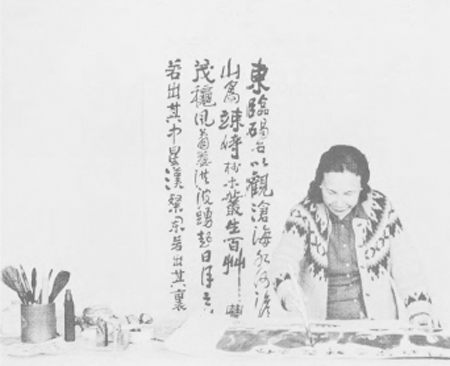 東臨碣石以觀滄海水何澹
山島竦峙樹木叢生百艸豐
茂穐風蕭瑟洪波踴起日月之行
若出其中星漢粲爛若出其裏